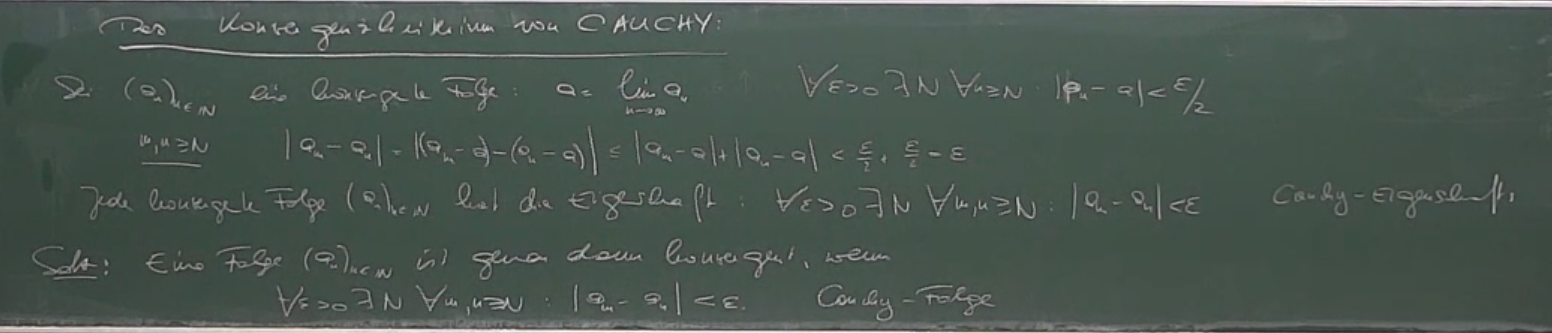 Das Konvergenzkriterium von CAUCHY:
Sei (aₙ)ₙ∈ℕ eine konvergente Folge: a = lim_{n→∞} aₙ ∀ε>0 ∃N ∀n≥N: |aₙ - a| < ε/2
m,n≥N |aₘ - aₙ| = |(aₘ - a) - (aₙ - a)| ≤ |aₘ - a| + |aₙ - a| < ε/2 + ε/2 = ε
Jede konvergente Folge (aₙ)ₙ∈ℕ hat die Eigenschaft: ∀ε>0 ∃N ∀m,n≥N: |aₘ - aₙ| < ε Cauchy-Eigenschaft.
Satz: Eine Folge (aₙ)ₙ∈ℕ ist genau dann konvergent, wenn
∀ε>0 ∃N ∀m,n≥N: |aₘ - aₙ| < ε. Cauchy-Folge